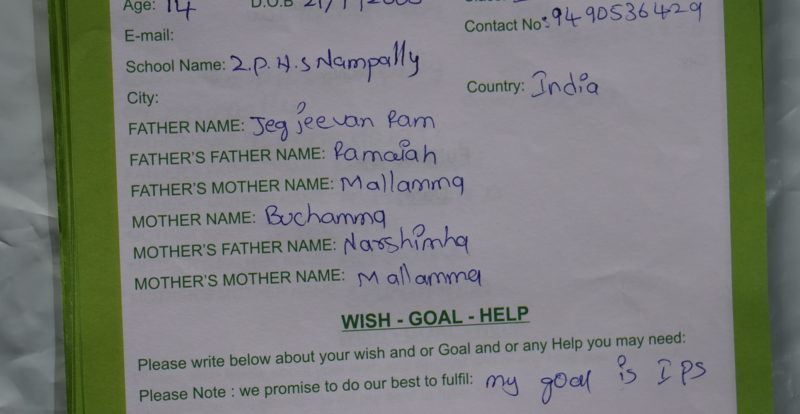 Age: 14 D.O.B 21/1/2000
Contact No: 9490536429
E-mail:
School Name: Z.P.H.S Nampally
City:
Country: India
FATHER NAME: Jegjeevan Ram
FATHER'S FATHER NAME: Ramaiah
FATHER'S MOTHER NAME: Mallamma
MOTHER NAME: Buchamma
MOTHER'S FATHER NAME: Narshimha
MOTHER'S MOTHER NAME: Mallamma
WISH - GOAL - HELP
Please write below about your wish and or Goal and or any Help you may need:
Please Note : we promise to do our best to fulfil: my goal is IPS